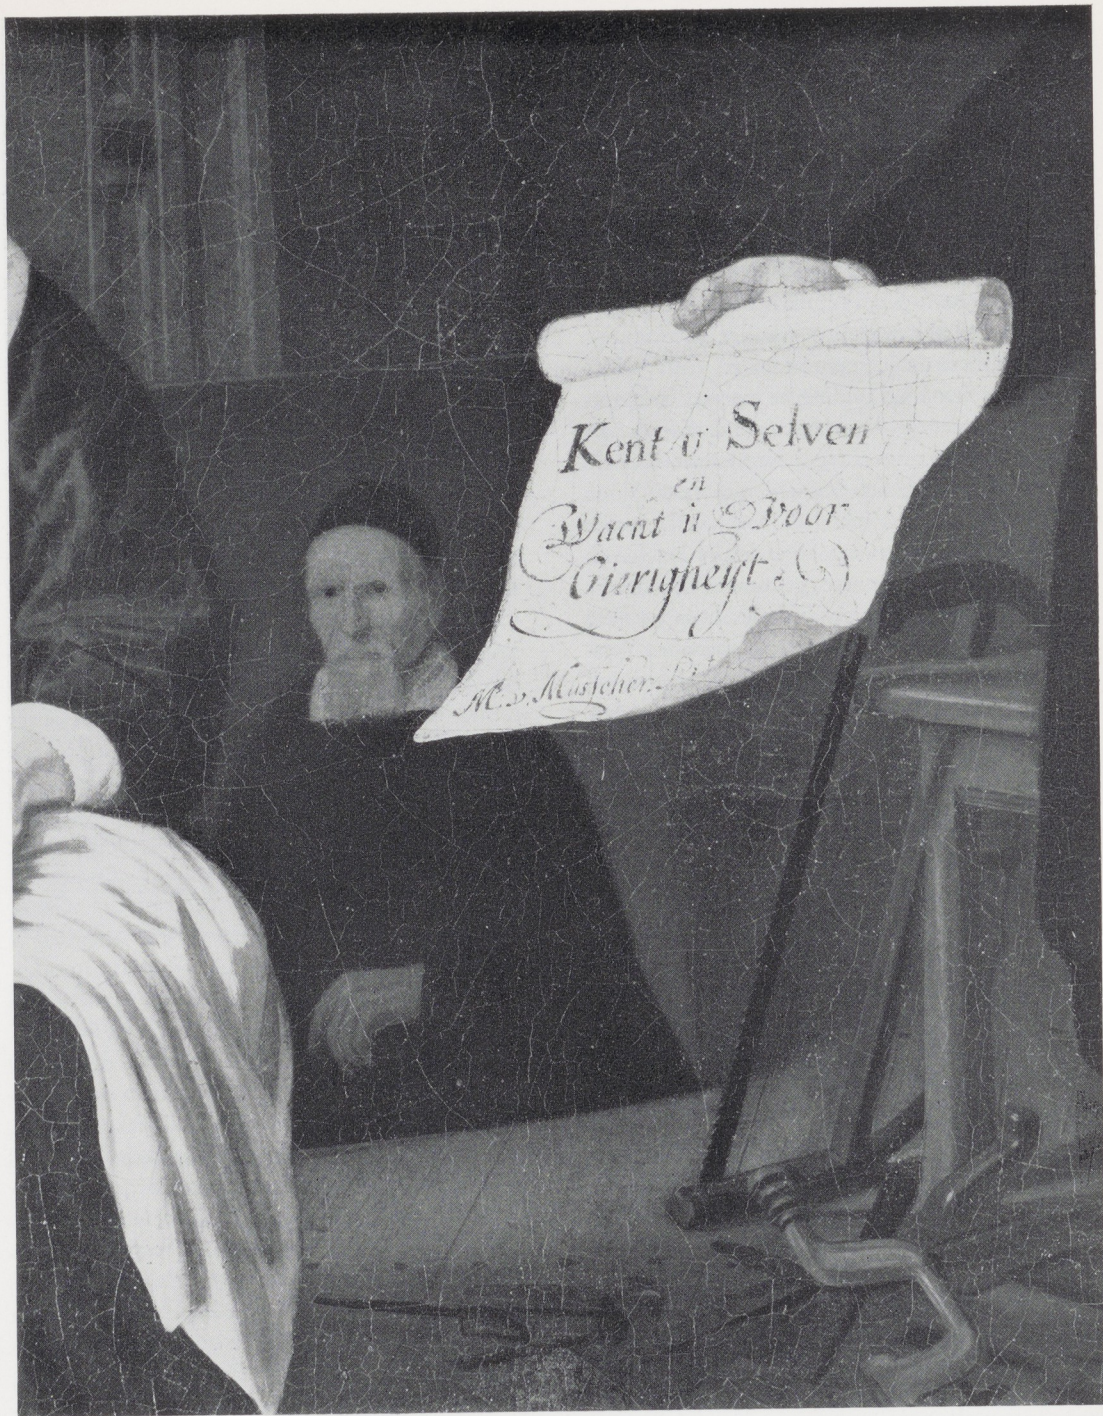 Kent u Selven
en
Wacht u Voor
Gierigheijt
M. v. Musscher.